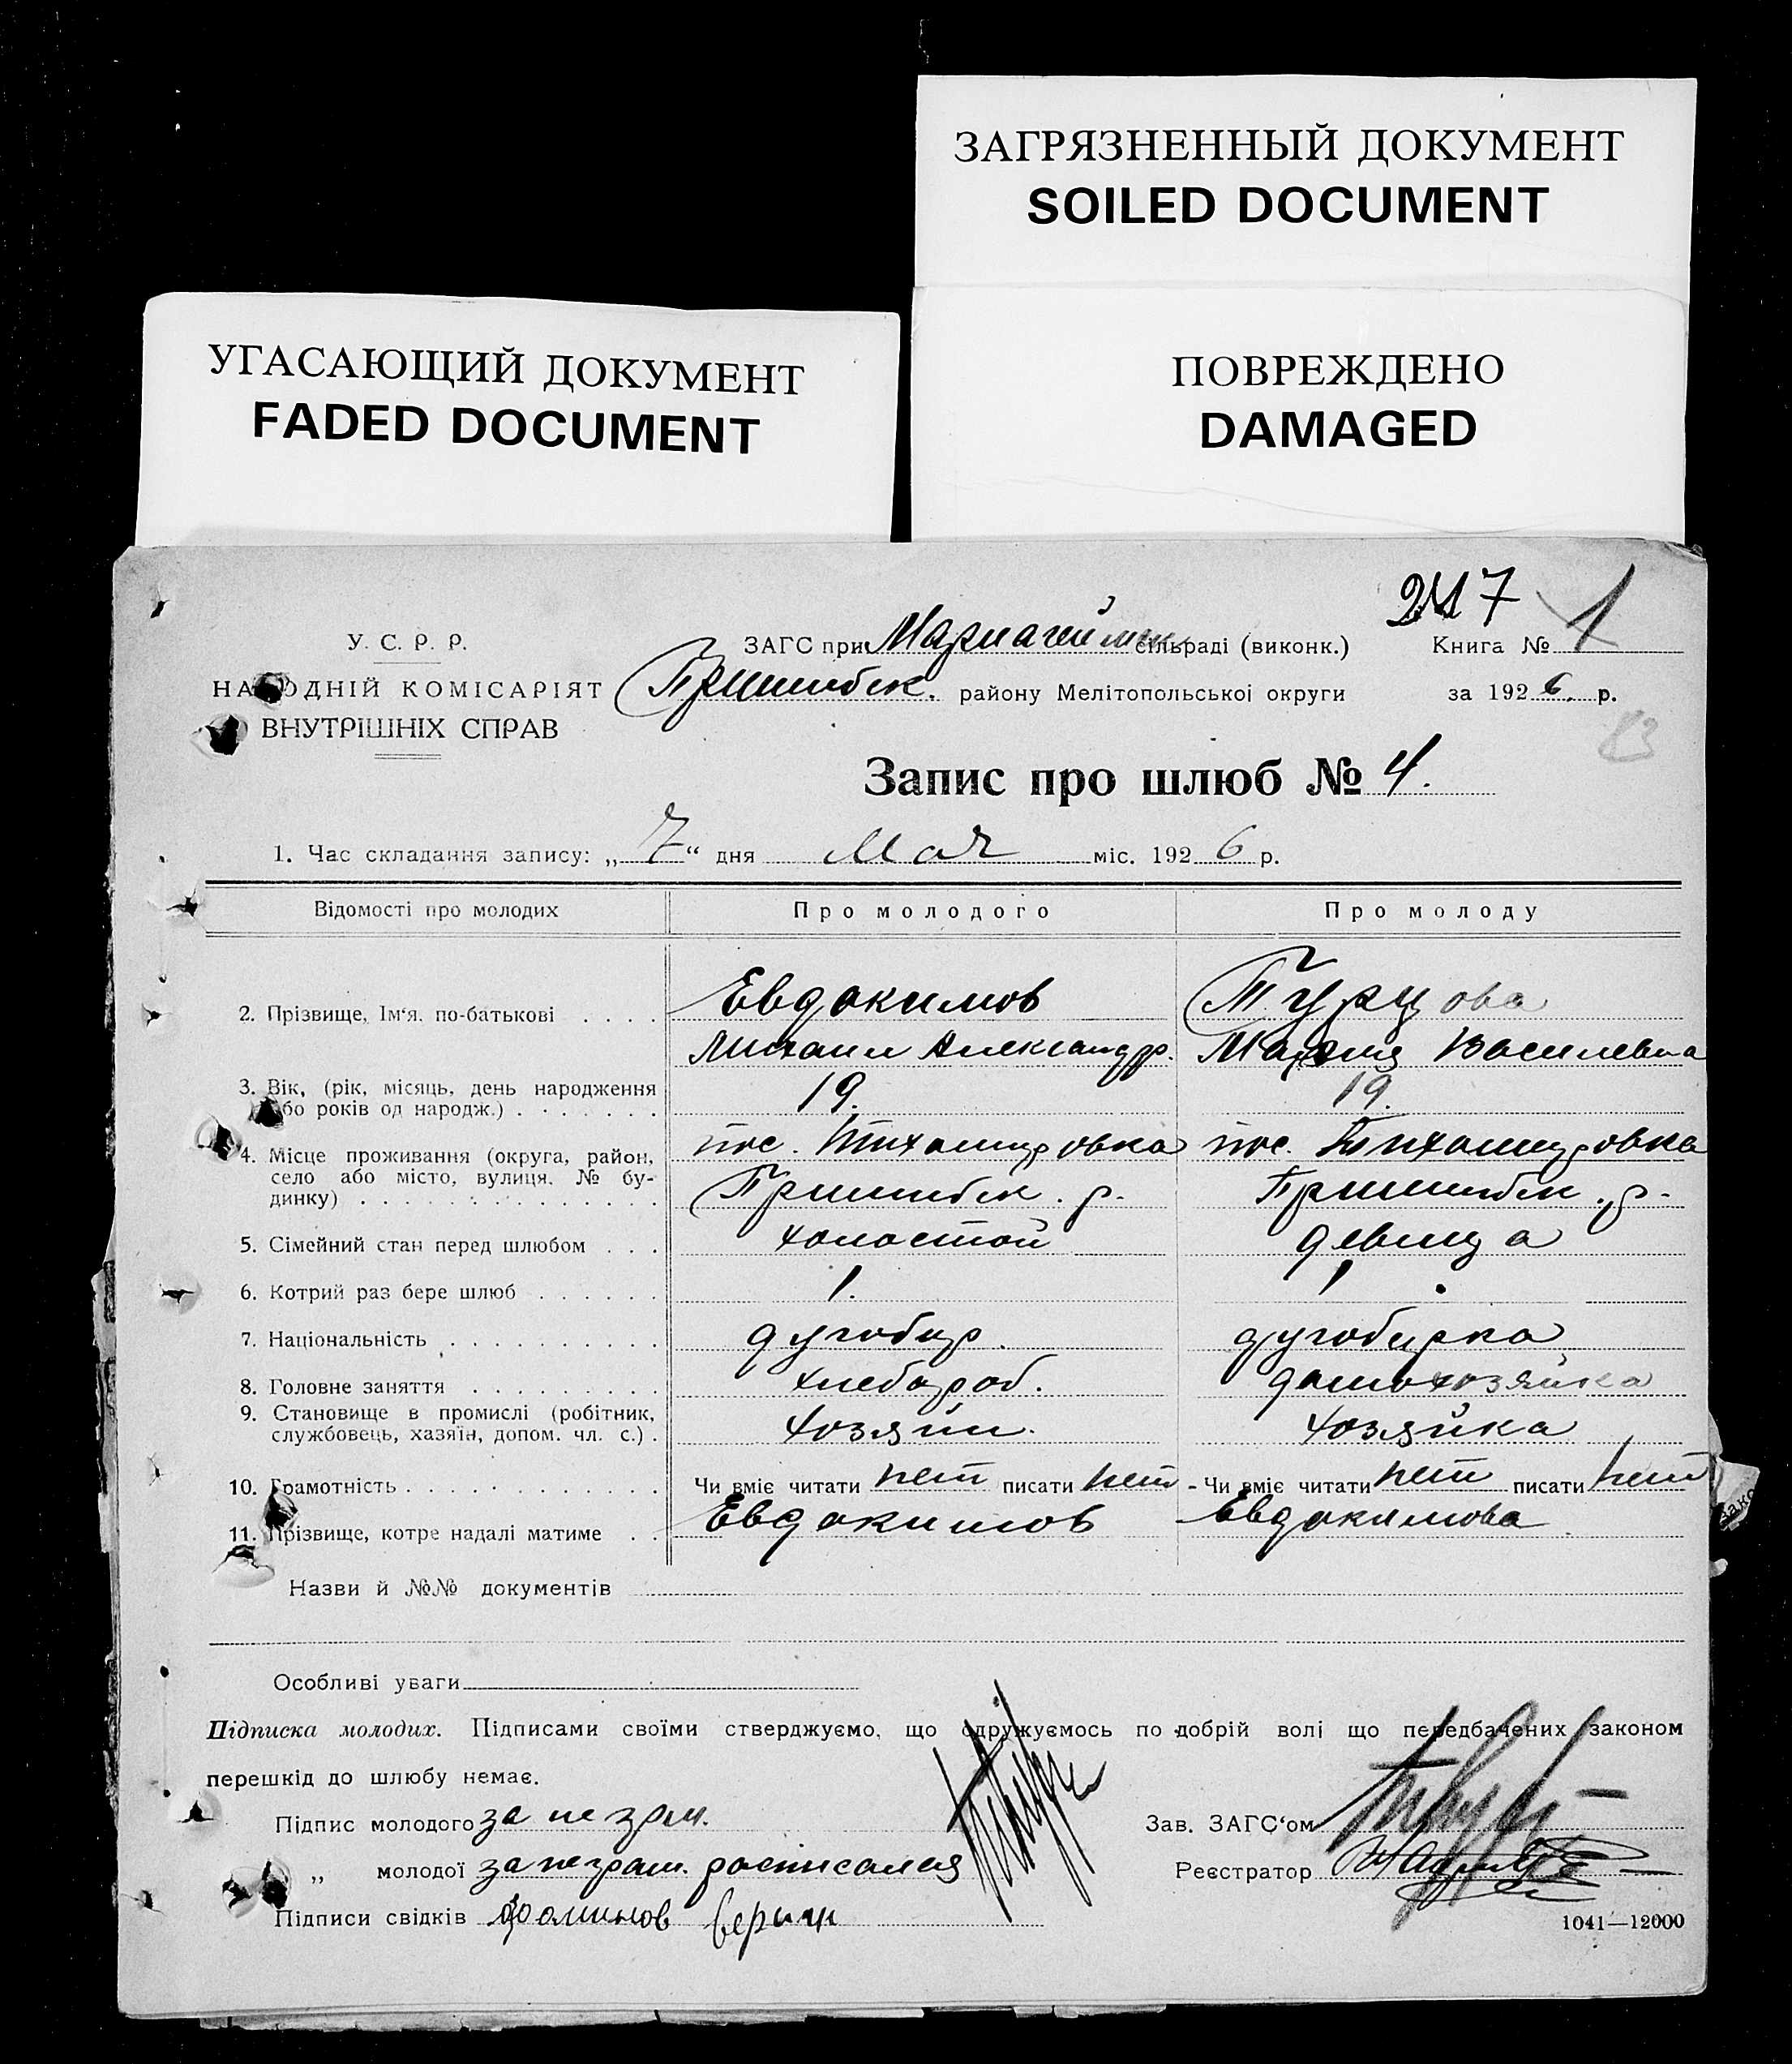 ЗАГРЯЗНЕННЫЙ ДОКУМЕНТ
SOILED DOCUMENT
УГАСАЮЩИЙ ДОКУМЕНТ
FADED DOCUMENT
ПОВРЕЖДЕНО
DAMAGED
У. С. Р. Р.
НАРОДНІЙ КОМІСАРІЯТ
ВНУТРІШНІХ СПРАВ
ЗАГС при сільраді (виконк.)
Пришибск. району Мелітопольської округи
247
Книга № 1
за 1926 р.
83
Запис про шлюб № 4.
1. Час складання запису: „7“ дня Мая міс. 1926 р.
Відомості про молодих Про молодого Про молоду
2. Прізвище, Ім'я. по-батькові . . . . Евдокимов
Михаил Александр. Василевна
3. Вік, (рік, місяць, день народження
або років од народж.) . . . . . . . 19. 19.
4. Місце проживання (округа, район, пос. Тихомировка пос. Тихомировка
село або місто, вулиця. № бу-
динку) . . . . . . . . . . . . . . Пришибск. р. Пришибск. р.
5. Сімейний стан перед шлюбом . . . холостой девица
6. Котрий раз бере шлюб . . . . . . 1. 1.
7. Національність . . . . . . . . . . духобор. духоборка
8. Головне заняття . . . . . . . . . хлебороб. домохозяйка
9. Становище в промислі (робітник,
службовець, хазяїн, допом. чл. с.) . хозяин. хозяйка
10. Грамотність . . . . . . . . . . . . Чи вміє читати нет писати нет Чи вміє читати нет писати нет
11. Прізвище, котре надалі матиме . . Евдокимов Евдокимова
Назви й №№ документів
Особливі уваги
Підписка молодих. Підписами своїми стверджуємо, що одружуємось по добрій волі що передбачених законом
перешкід до шлюбу немає.
Підпис молодого за не грам.
„ молодої за неграм. росписался
Підписи свідків
Зав. ЗАГС'ом
Реєстратор
1041—12000